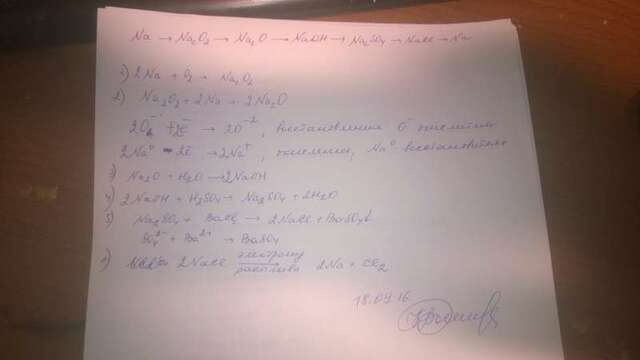 Na → Na₂O₂ → Na₂O → NaOH → Na₂SO₄ → NaCl → Na
1) 2Na + O₂ → Na₂O₂
2) Na₂O₂ + 2Na → 2Na₂O
2O⁻ + 2e → 2O⁻², восстановление, O окислитель
2Na⁰ - 2e → 2Na⁺, окисление, Na⁰ восстановитель
3) Na₂O + H₂O → 2NaOH
4) 2NaOH + H₂SO₄ → Na₂SO₄ + 2H₂O
5) Na₂SO₄ + BaCl₂ → 2NaCl + BaSO₄↓
SO₄²⁻ + Ba²⁺ → BaSO₄
6) 2NaCl электролиз расплава → 2Na + Cl₂
18.09.16